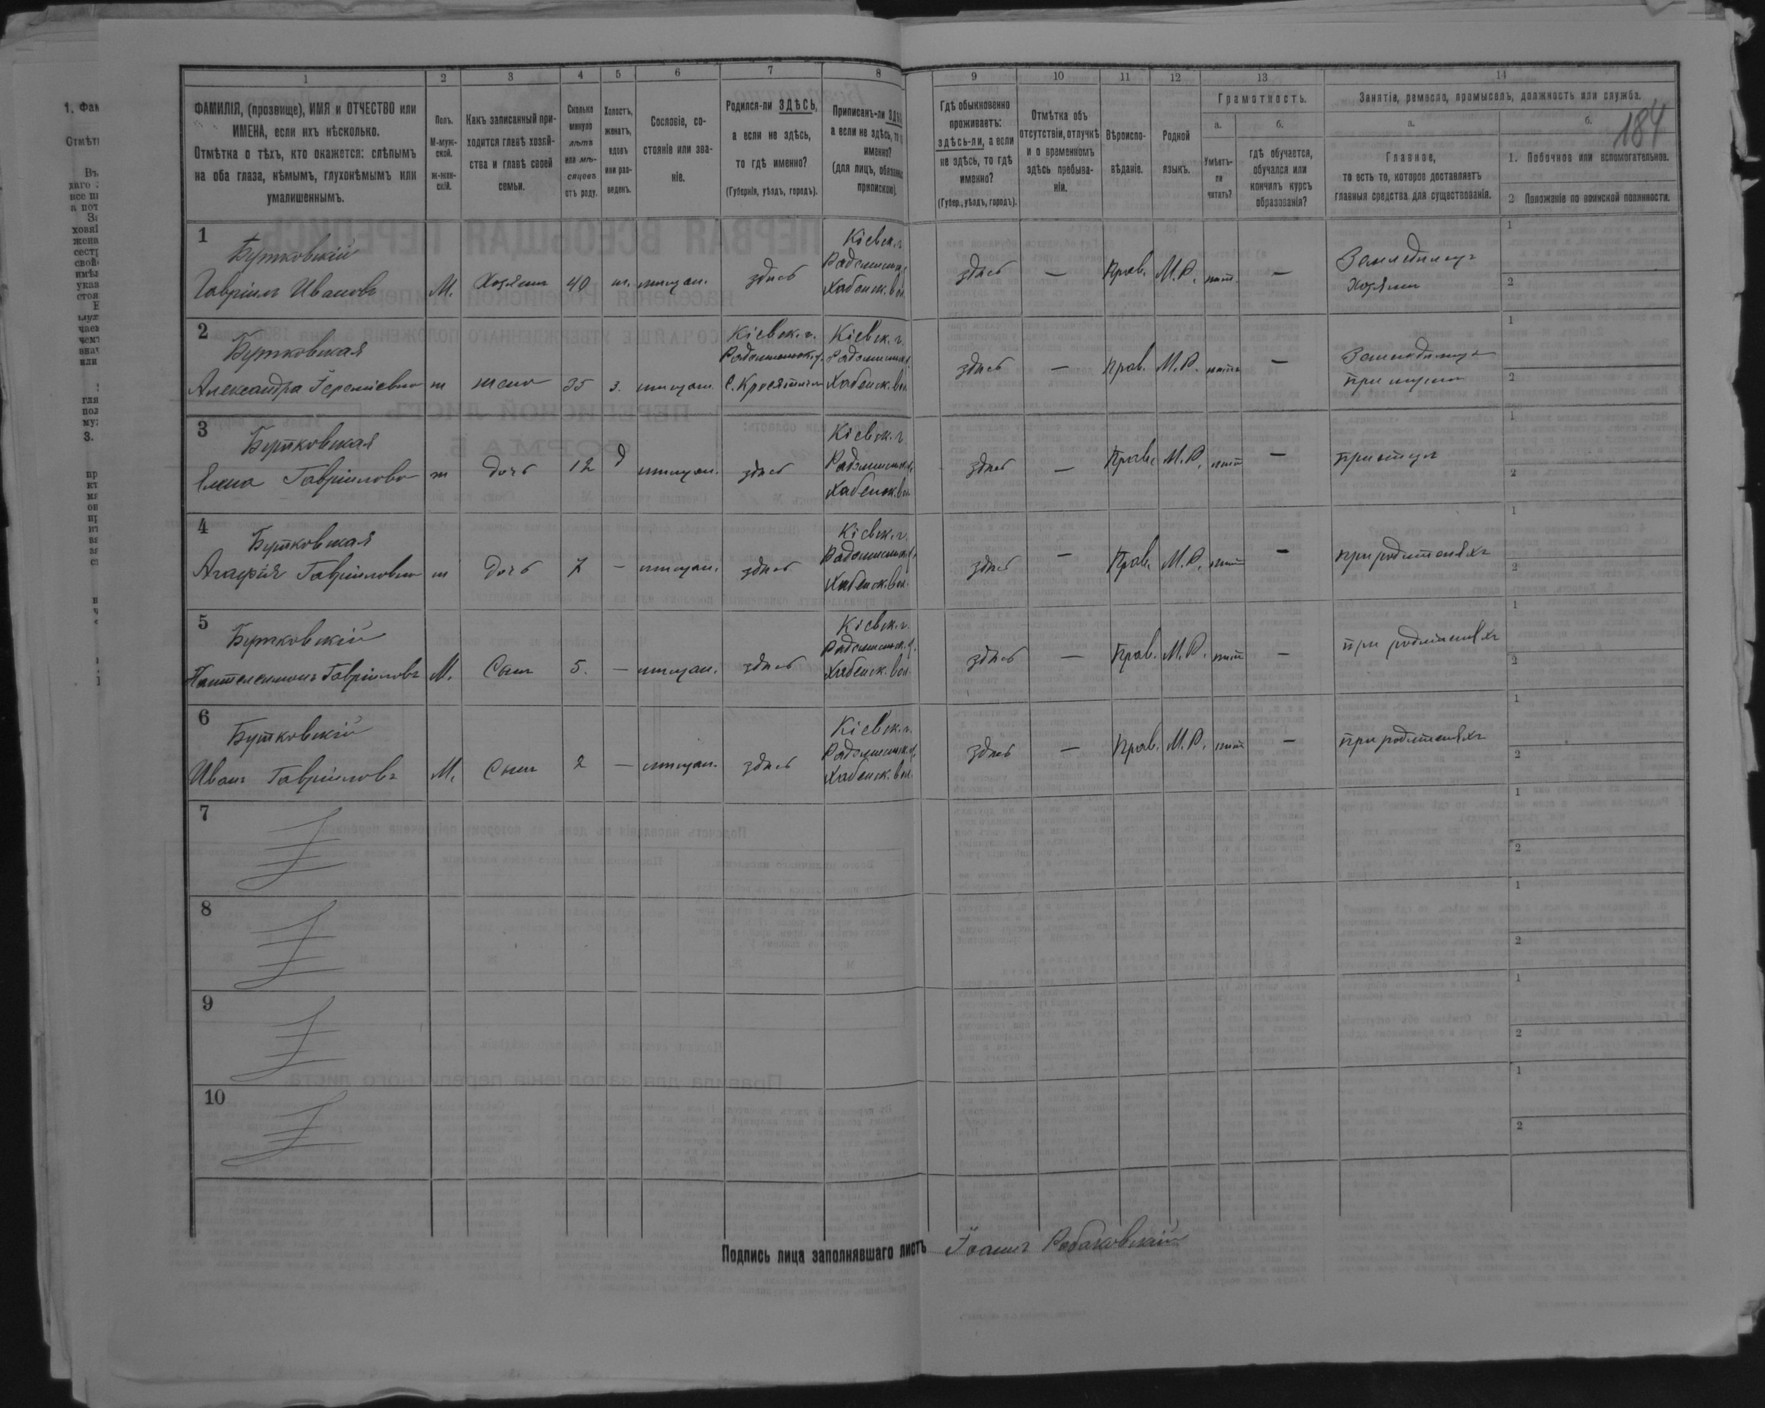 1 2 3 4 5 6 7 8 9 10 11 12 13 14
ФАМИЛІЯ, (прозвище), ИМЯ и ОТЧЕСТВО или
ИМЕНА, если ихъ нѣсколько.
Отмѣтка о тѣхъ, кто окажется: слѣпымъ
на оба глаза, нѣмымъ, глухонѣмымъ или
умалишеннымъ.
Полъ.
М-муж-
ской.
ж-жен-
скій.
Какъ записанный при-
ходится главѣ хозяй-
ства и главѣ своей
семьи.
Сколько
минуло
лѣтъ
или мѣ-
сяцевъ
отъ роду.
Холостъ,
женатъ,
вдовъ
или раз-
веденъ.
Сословіе, со-
стояніе или зва-
ніе.
Родился-ли ЗДѢСЬ,
а если не здѣсь,
то гдѣ именно?
(Губернія, уѣздъ, городъ).
Приписанъ-ли
а если не здѣсь,
именно?
(для лицъ,
Гдѣ обыкновенно
проживаетъ:
ЗДѢСЬ-ЛИ, а если
не здѣсь, то гдѣ
именно?
(Губер., уѣздъ, городъ).
Отмѣтка объ
отсутствіи, отлучкѣ
и о временномъ
здѣсь пребыва-
ніи.
Вѣроиспо-
вѣданіе.
Родной
языкъ.
Грамотность.
а. б.
Умѣетъ-
ли
читать?
гдѣ обучается,
обучался или
кончилъ курсъ
образованія?
Занятіе, ремесло, промыселъ, должность или служба.
184
а. б.
Главное,
то есть то, которое доставляетъ
главныя средства для существованія.
1. Побочное или вспомогательное.
2 Положеніе по воинской повинности.
1
Бутковскій
Гавріилъ Ивановъ М. Хозяинъ 40 ж. мѣщан. здѣсь
Кіевск. г.
Радомысльск. у.
Хабенск. вол.
здѣсь — Прав. М.Р. нѣтъ —
Земледѣлецъ
Хозяинъ
1
2
2
Бутковская
Александра ж жена 35 з. мѣщан.
Кіевск. г.
Радомысльск. у.
с.
Кіевск. г.
Радомысльск. у.
Хабенск. вол.
здѣсь — Прав. М.Р. нѣтъ —
при мужѣ
1
2
3
Бутковская
Елена Гавріилова ж дочь 12 д мѣщан. здѣсь
Кіевск. г.
Радомысльск. у.
Хабенск. вол.
здѣсь — Прав. М.Р. нѣтъ —
при отцѣ
1
2
4
Бутковская
Агафія Гавріилова ж дочь 7 — мѣщан. здѣсь
Кіевск. г.
Радомысльск. у.
Хабенск. вол.
здѣсь — Прав. М.Р. нѣтъ —
при родителяхъ
1
2
5
Бутковскій
Пантелеимонъ Гавріиловъ М. Сынъ 5. — мѣщан. здѣсь
Кіевск. г.
Радомысльск. у.
Хабенск. вол.
здѣсь — Прав. М.Р. нѣтъ —
при родителяхъ
1
2
6
Бутковскій
Иванъ Гавріиловъ М. Сынъ 2 — мѣщан. здѣсь
Кіевск. г.
Радомысльск. у.
Хабенск. вол.
здѣсь — Прав. М.Р. нѣтъ —
при родителяхъ
1
2
7
1
2
8
1
2
9
1
2
10
1
2
Подпись лица заполнявшаго листъ Іоаннъ